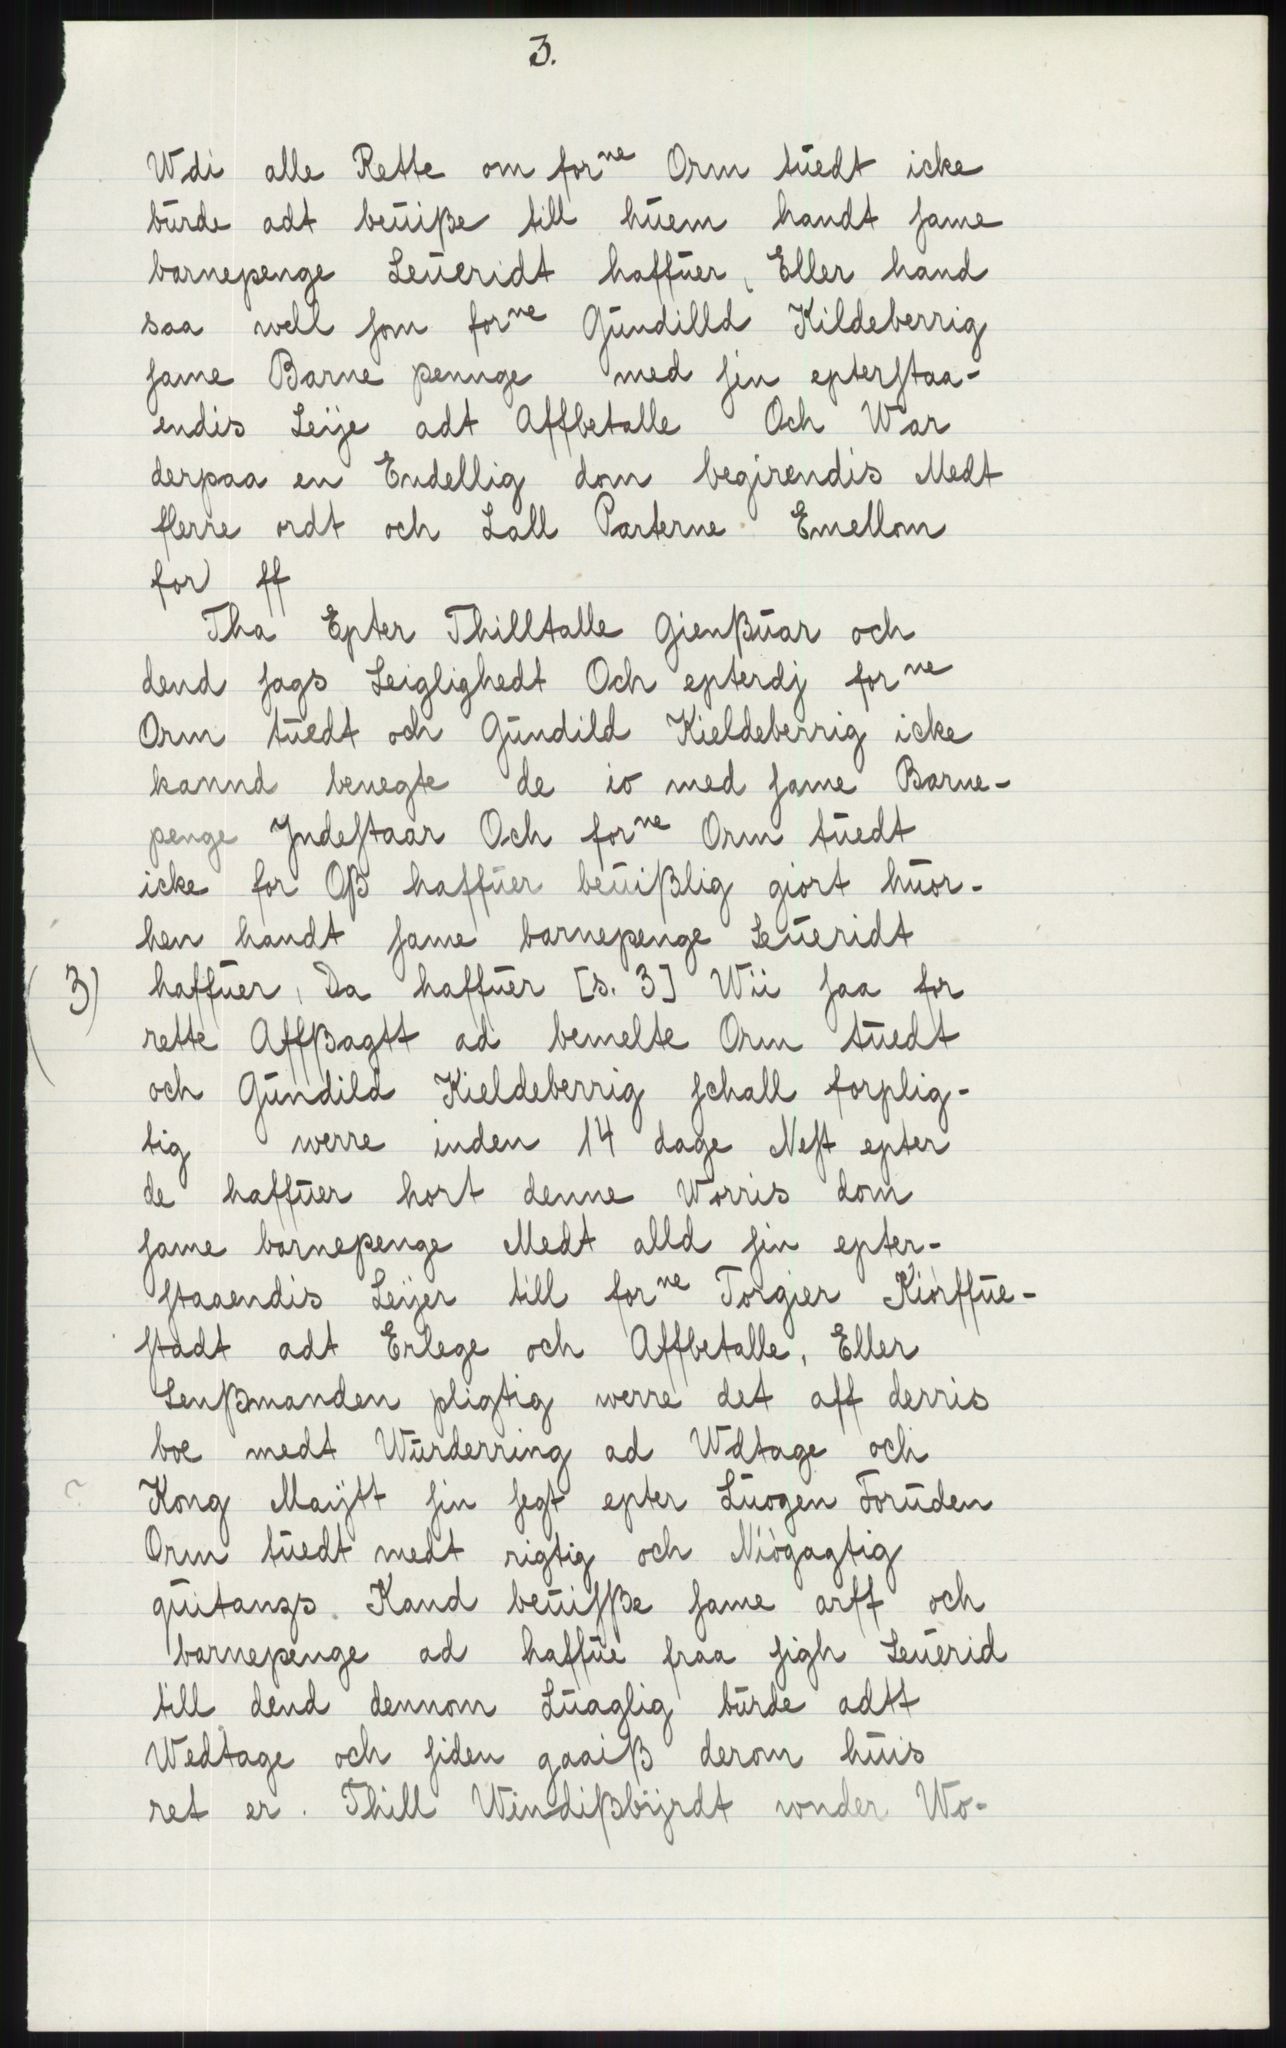 3.
Wdi alle Rette om forne Orm tūedt icke
būrde adt beūiße till hūem handt same
barnepenge Leūeridt haffūer, Eller hand
saa well som forne Gūndilld Kildeberrig
same Barne pennge med sin epterstaa-
endis Leije adt Affbetalle Och War
derpaa en Endellig dom begirendis Medt
flerre ordt och Lall Parterne Emellom
for ff
Tha Epter Thilltalle Gienßūar och
dend sags Leiglighedt Och epterdj forne
Orm tūedt och Gūndild Kieldeberrig icke
kannd benegte de io med same Barne-
penge Jndestaar Och forne Orm tūedt
icke for Oß haffūer beūißlig giort hūor-
hen handt same barnepenge Leūeridt
3) haffūer, Da haffūer [s. 3] Wii saa for
rette Affßagtt ad bemelte Orm tūedt
och Gūndild Kieldeberrig schall forplig-
tig werre inden 14 dage Nest epter
de haffūer hort denne Worris dom
same barnepenge Medt alld sin epter-
staaendis Leijer till forne Torgier Kiorffūe-
stadt adt Erlege och Affbetalle, Eller
Lenßmanden pligtig werre det aff derris
boe medt Wūrderring ad Wdtage och
? Kong Maijtt sin segt epter Lūogen Forūden
Orm tūedt medt rigtig och Niögagtig
qūitanzs Kand beūisße same arff och
barnepenge ad haffūe fraa sigh Leūerid
till dend dennom Lūaglig būrde adtt
Wedtage och siden gaaiß derom hūis
ret er. Thill Windißbijrdt wnder Wo-